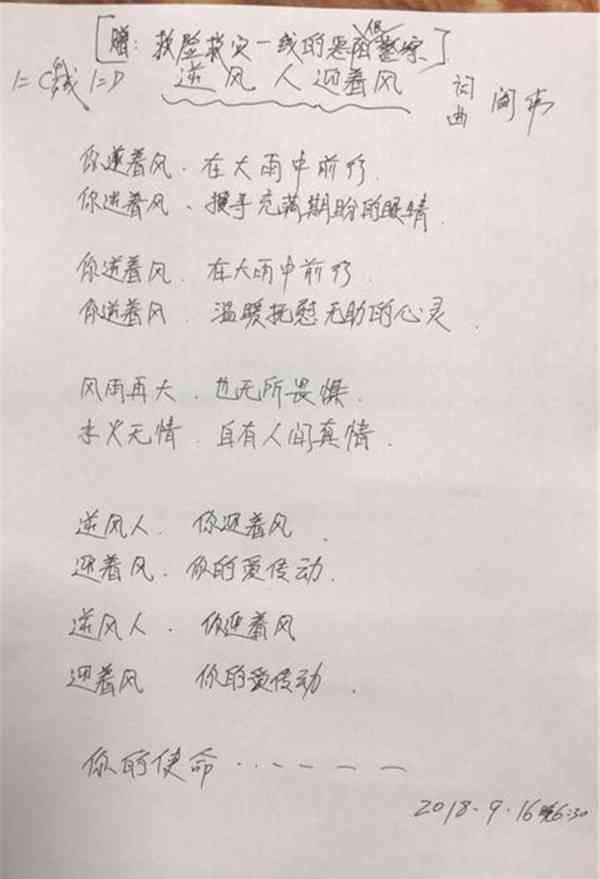 [赠：救险救灾一线的恩阳警察]
1=C或1=D 逆风人迎着风 词曲
你逆着风．在大雨中前行．
你逆着风、搜寻充满期盼的眼睛．
你逆着风．在大雨中前行．
你逆着风 温暖抚慰无助的心灵．
风雨再大．也无所畏惧．
水火无情 自有人间真情．
逆风人． 你迎着风．
迎着风．你的爱传动．
逆风人． 你迎着风
迎着风 你的爱传动．
你的使命
2018.9.16晚6:30